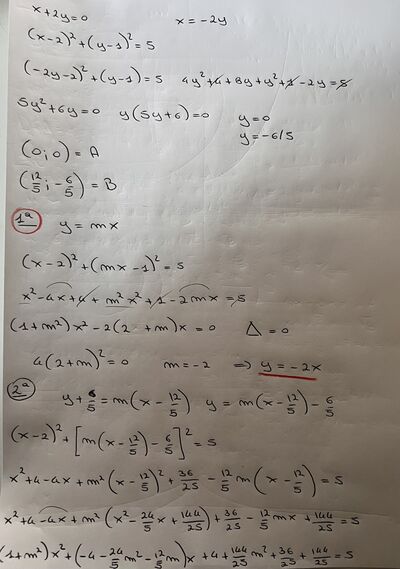 x+2y=0 x=-2y
(x-2)²+(y-1)²=5
(-2y-2)²+(y-1)=5 4y²+4+8y+y²+1-2y=5
5y²+6y=0 y(5y+6)=0 y=0
y=-6/5
(0;0)=A
(12/5;-6/5)=B
1ª y=mx
(x-2)²+(mx-1)²=5
x²-4x+4+m²x²+1-2mx=5
(1+m²)x²-2(2+m)x=0 Δ=0
4(2+m)²=0 m=-2 ⇒ y=-2x
2ª y+6/5=m(x-12/5) y=m(x-12/5)-6/5
(x-2)²+[m(x-12/5)-6/5]²=5
x²+4-4x+m²(x-12/5)²+36/25-12/5m(x-12/5)=5
x²+4-4x+m²(x²-24/5x+144/25)+36/25-12/5mx+144/25=5
(1+m²)x²+(-4-24/5m²-12/5m)x+4+144/25m²+36/25+144/25=5